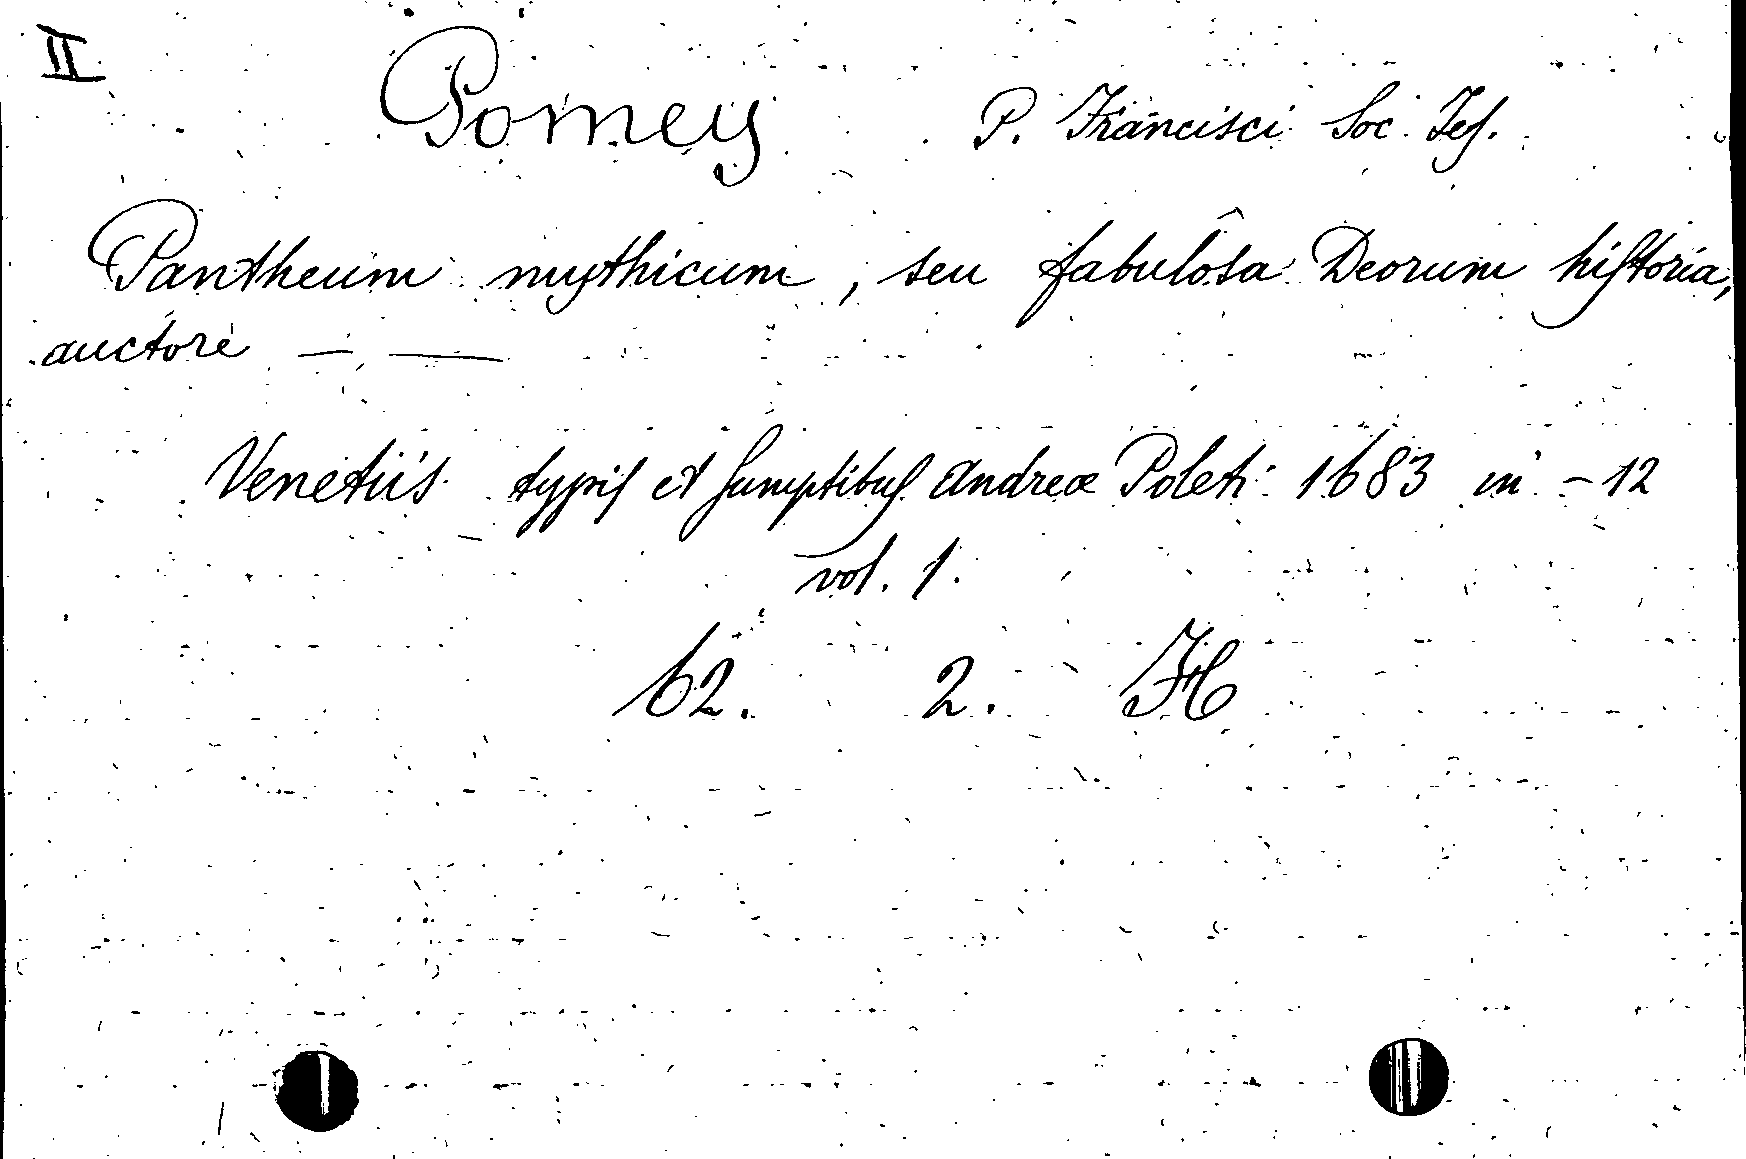 II
Pomey P. Francisci Soc. Jes.
Pantheum mythicum, seu fabulôsa Deorum historia,
auctore — —
Venetiis typis et sumptibus Andreæ Poleti 1683 in - 12
vol. 1.
62. 2. H